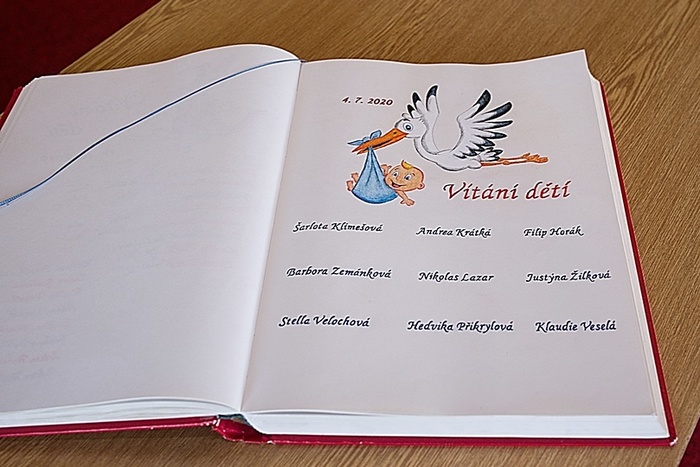 4. 7. 2020
Vítání dětí
Šarlota Klímešová Andrea Krátká Filip Horák
Barbora Zemánková Nikolas Lazar Justýna Žilková
Stella Velochová Hedvika Přikrylová Klaudie Veselá